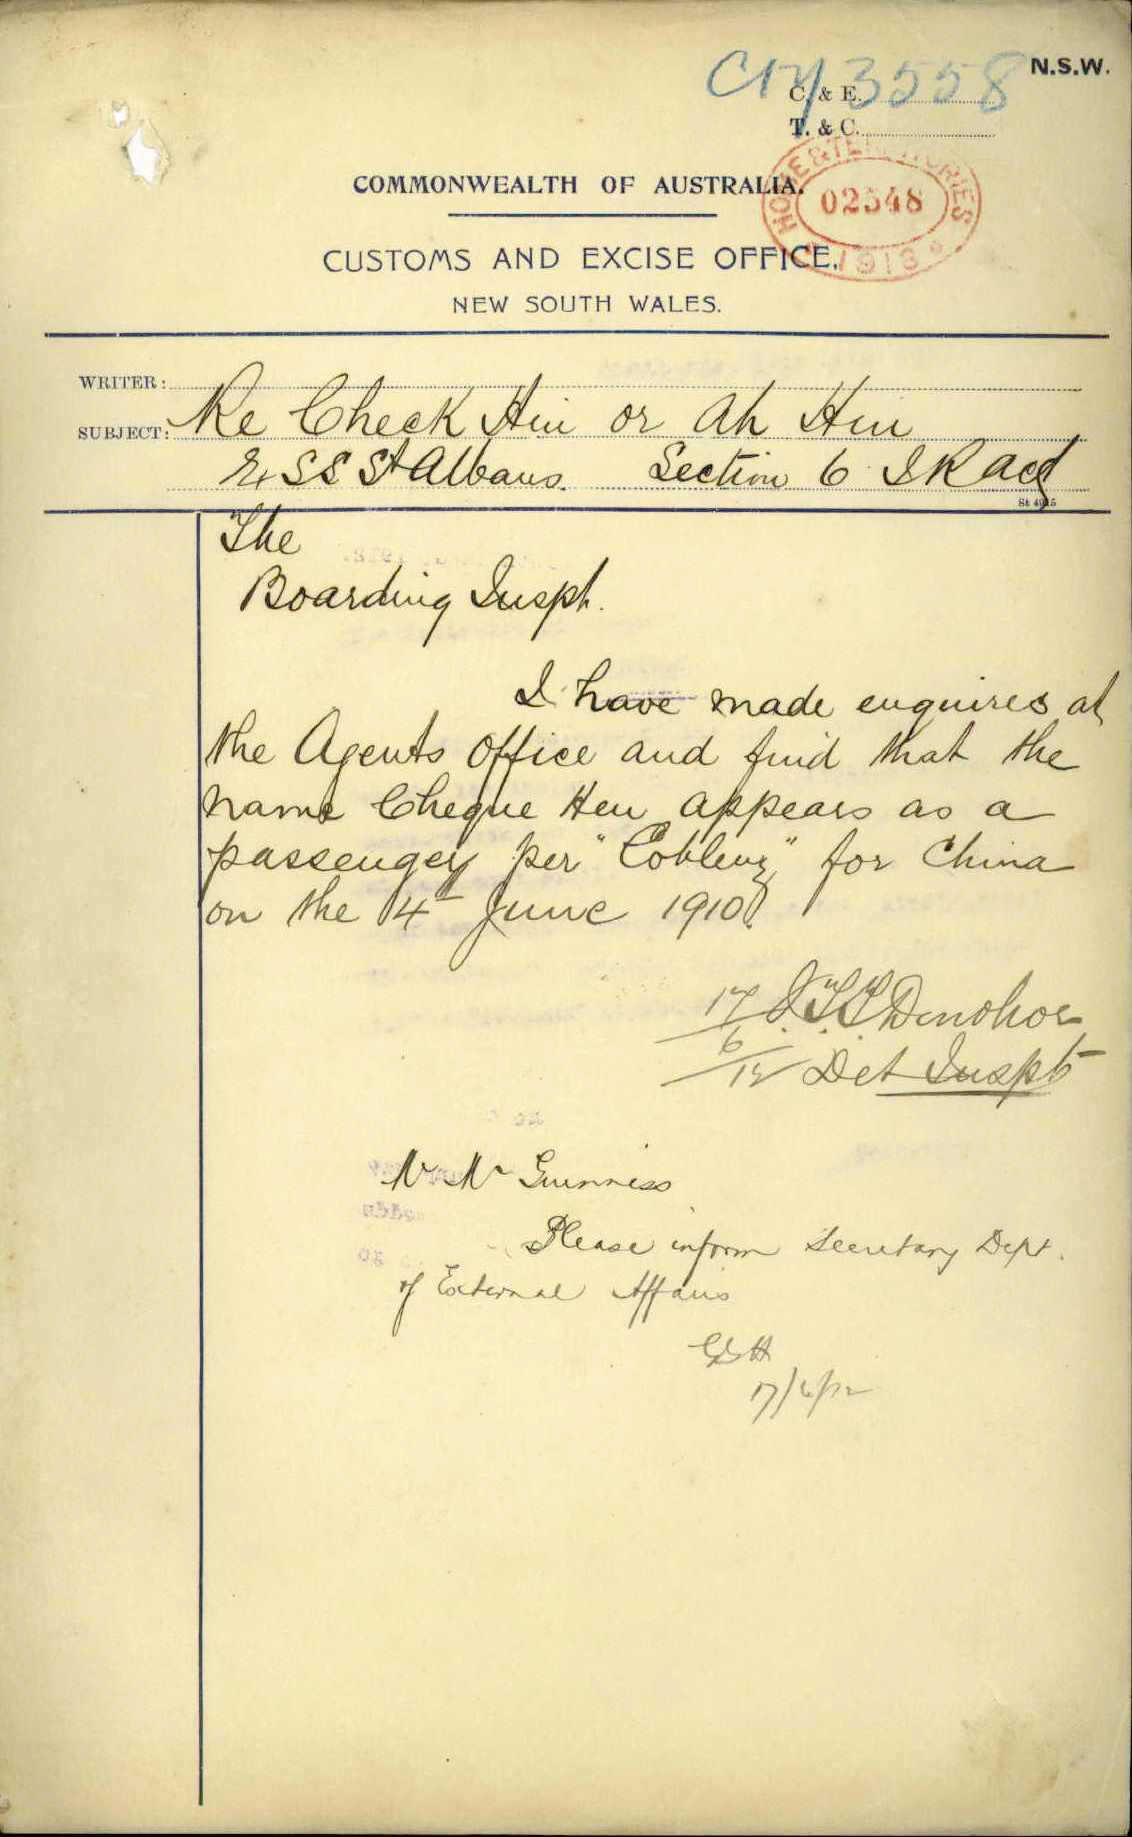 C17/3558
N.S.W.
C. & E.
T. & C.
HOME & TERRITORIES
02548
1913
COMMONWEALTH OF AUSTRALIA.
CUSTOMS AND EXCISE OFFICE,
NEW SOUTH WALES.
WRITER:
SUBJECT: Re Check Hin or Ah Hin
Ex SS St Albans. Section 6 I R Act
St 4915
The
Boarding Inspt.
I have made enquires at
the Agents Office and find that the
name Cheque Hen appears as a
passenger per "Coblenz" for China
on the 4th June 1910.
17/6/12 J.T.T. Donohoe
Det Inspt
Mr Mc Guinness
Please inform Secretary Dept.
of External Affairs
17/6/12